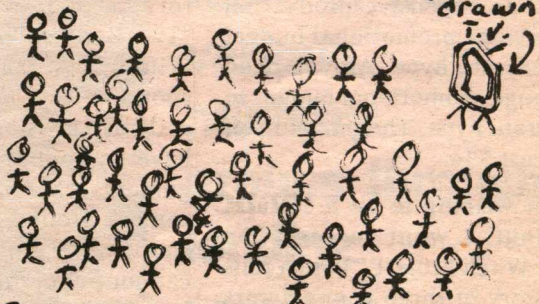 drawn
T.V.